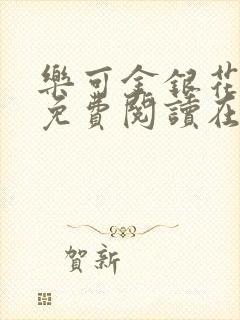 樂可金銀花
免費閱讀在
賀新